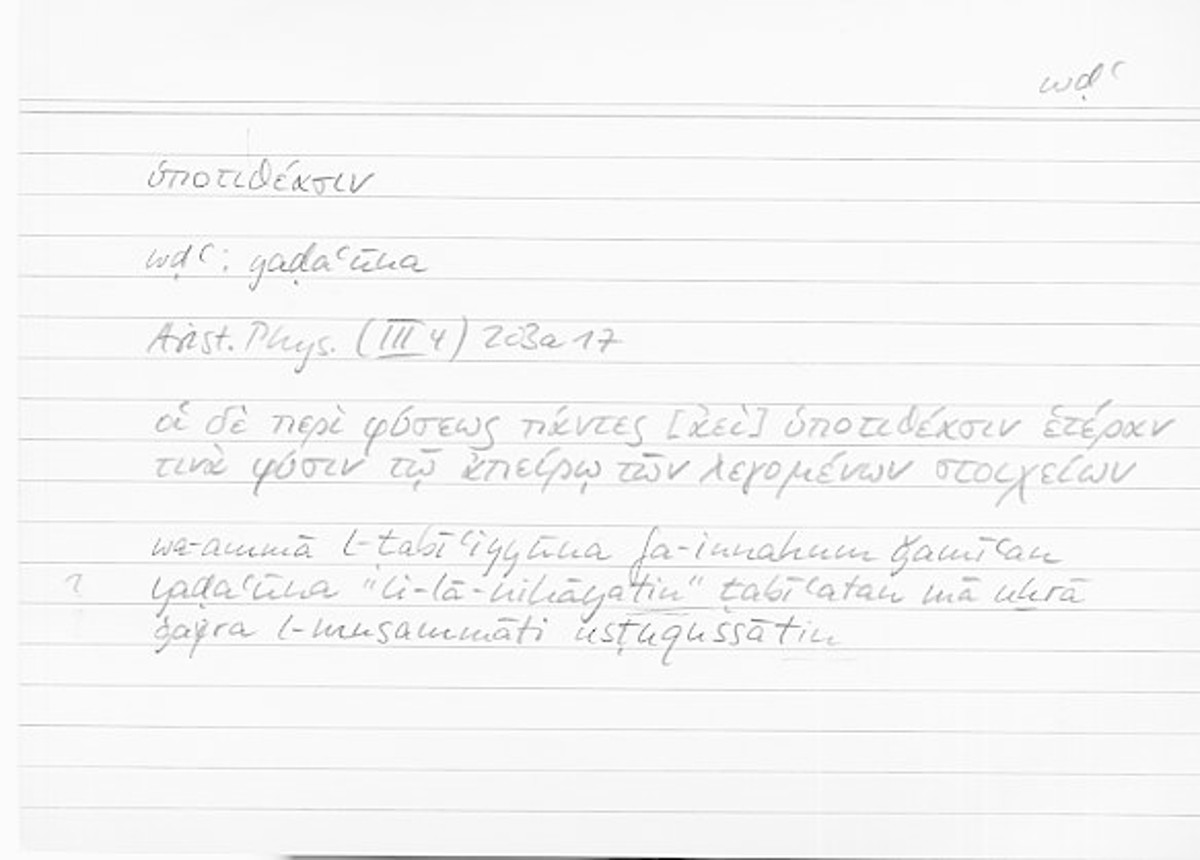 wḍʿ
ὑποτιθέασιν
wḍʿ: yaḍaʿūna
Arist. Phys. (III 4) 203a 17
οἱ δὲ περὶ φύσεως πάντες [ἀεὶ] ὑποτιθέασιν ἑτέραν
τινὰ φύσιν τῷ ἀπείρῳ τῶν λεγομένων στοιχείων
wa-ammā l-ṭabīʿiyyūna fa-innahum ǧamīʿan
? yaḍaʿūna "li-lā-nihāyatin" ṭabīʿatan mā uḫrā
ġayra l-musammāti usṭuqussātin